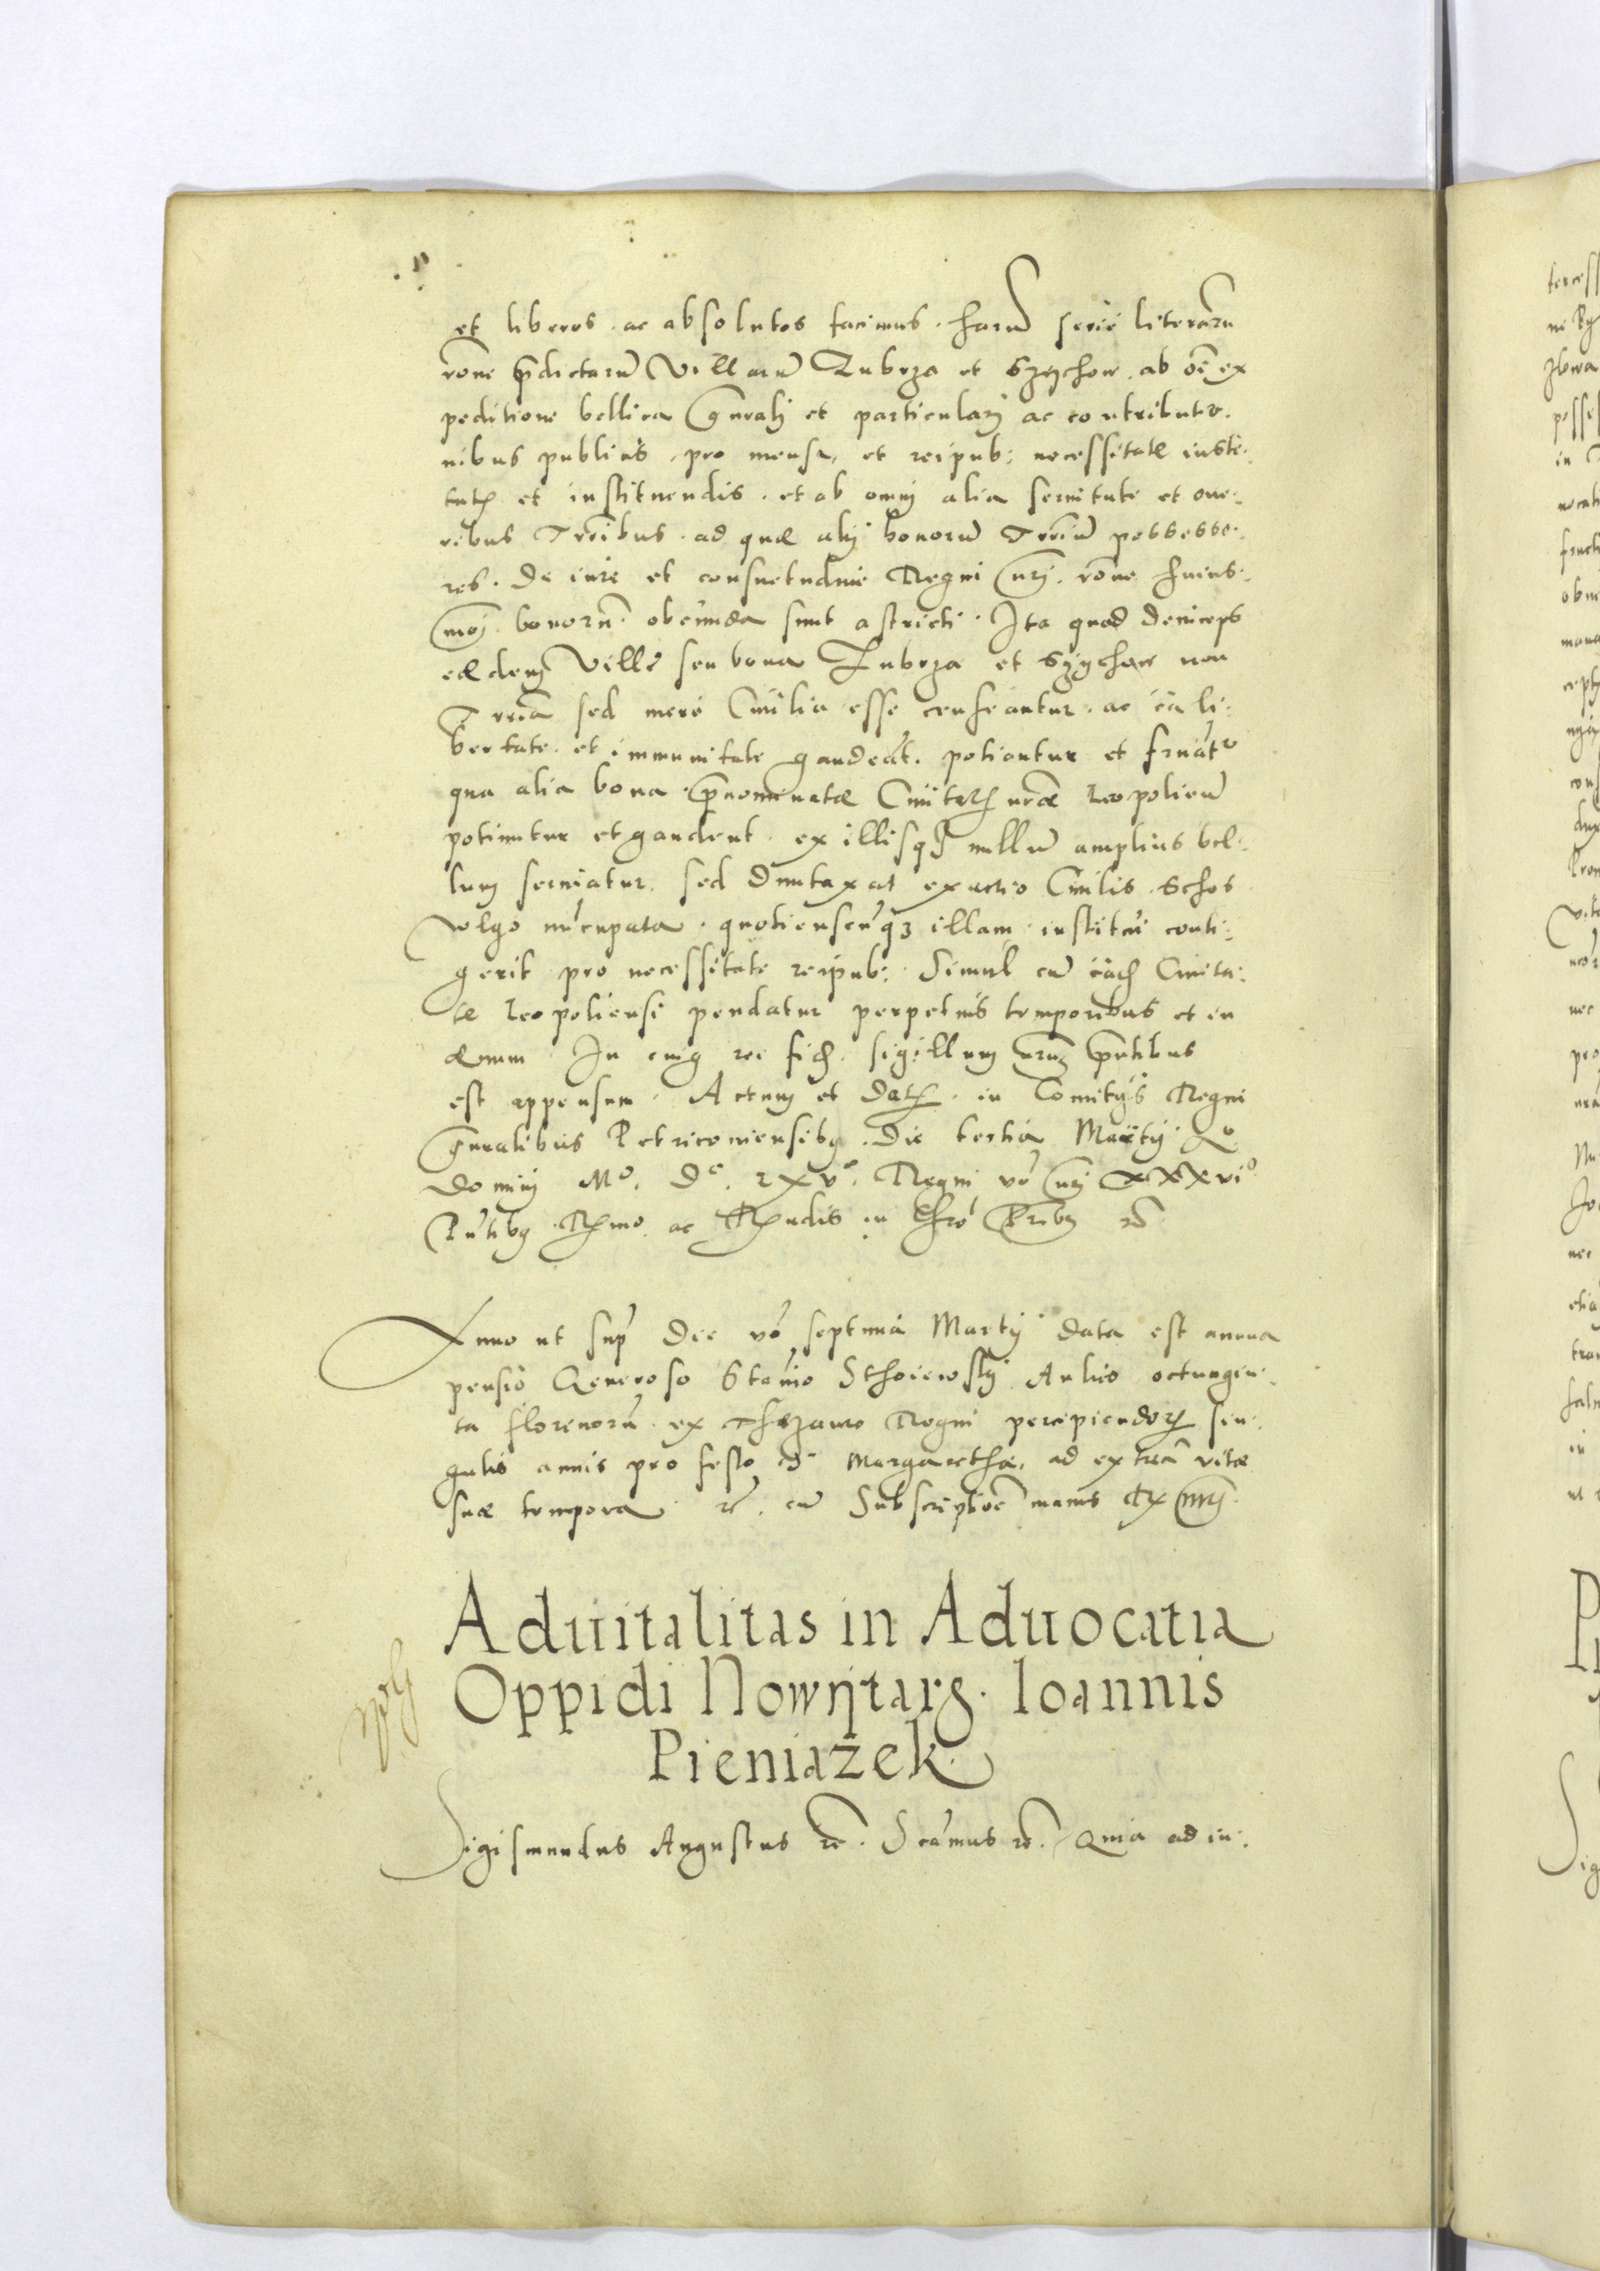 et liberos . ac absolutos facimus . harū serie literarū
rōne p̄dictarū Villarū Zubrza et Szychow . ab oē ex
peditione bellica gn̄ralj et particularj ac contributio.
nibus publicis , pro mensa , et reipub: necessitate insti:
tut et instituendis . et ab omnj alia seruitute et one:
ribus Trr̄ibus . ad quæ alij bonorū Trr̄iū possesso:
res . de iure et consuetudine Regni nr̄j . rōne huius:
mōj . bonorū . obeunda sunt astricti . Ita quod deinceps
eædem Villę seu bona Zubrza et Szychow non
Trr̄ia sed mere Ciuilia esse censeantur . ac ea li:
bertate . et immunitate gaudeāt . potiantur et fruāt
qua alia bona p̄nominatæ Ciuitat nr̄æ Leopolien̄
potiuntur et gaudent . ex illisq nullū amplius bel:
lum seruiatur . sed duntaxat exactio Ciuilis . Schos
vulgo nūcupata . quotienscūq3 illam institui conti:
gerit pro necessitate reipub: . Simul cū eād Ciuita:
te Leopoliensi pendatur perpetuis temporibus et in
æuum . In cuig rei fid . sigillum nr̄um p̄ntibus
est appensum . Actum et dat . in Comitijs Regni
gn̄ralibus Petricouiensibg . die tertia Martij . Aº
dominj Mº . Dº . LXVº . Regni vō nr̄j XXXVIº
Pn̄tibg . Rmo . ac Rndis in Chrō Pribg rē
Anno ut sup̄ die vō septima Martij data est annua
pensio Generoso Stānio Sthoiewskj Aulico octungin:
ta florenorū . ex Thezauro Regni percipiendor sin:
gulis annis pro festo S. Margarethæ . ad extrēa vitæ
suæ tempora rē . cū Subscriptiōe manus Rx nr̄j.
Aduitalitas in Aduocatia
Oppidi Nowytarg . Ioannis
Pieniazek .
Sigismundus Augustus rē . Sca͞mus rē . Quia ad in: